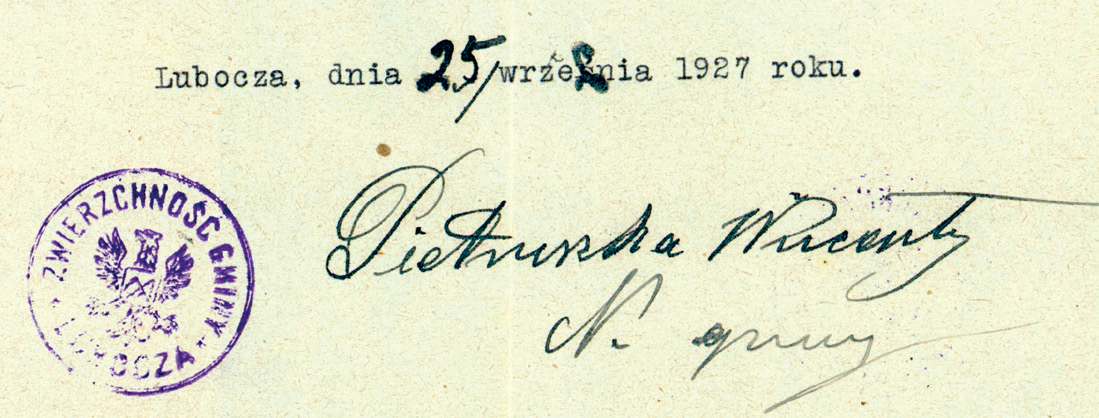 Lubocza, dnia 25/września 1927 roku.
ZWIERZCHNOŚĆ GMINY
LUBOCZA
Pietruszka Wincenty
N. gminy